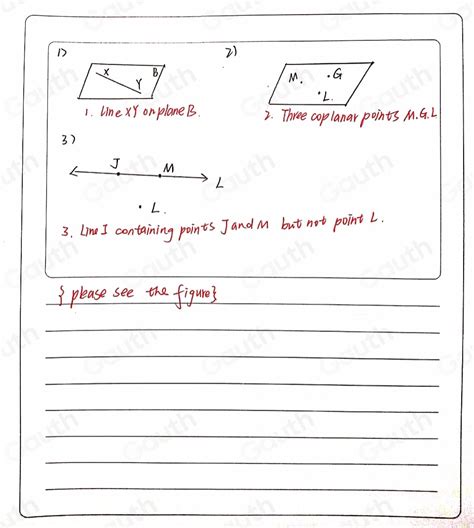 1)
2)
X
B
Y
M.
.G
.L
1. Line XY on plane B.
2. Three coplanar points M.G.L
3)
J
M
L
. L.
3. Line I containing points J and M but not point L.
{ please see the figure}
Gauth